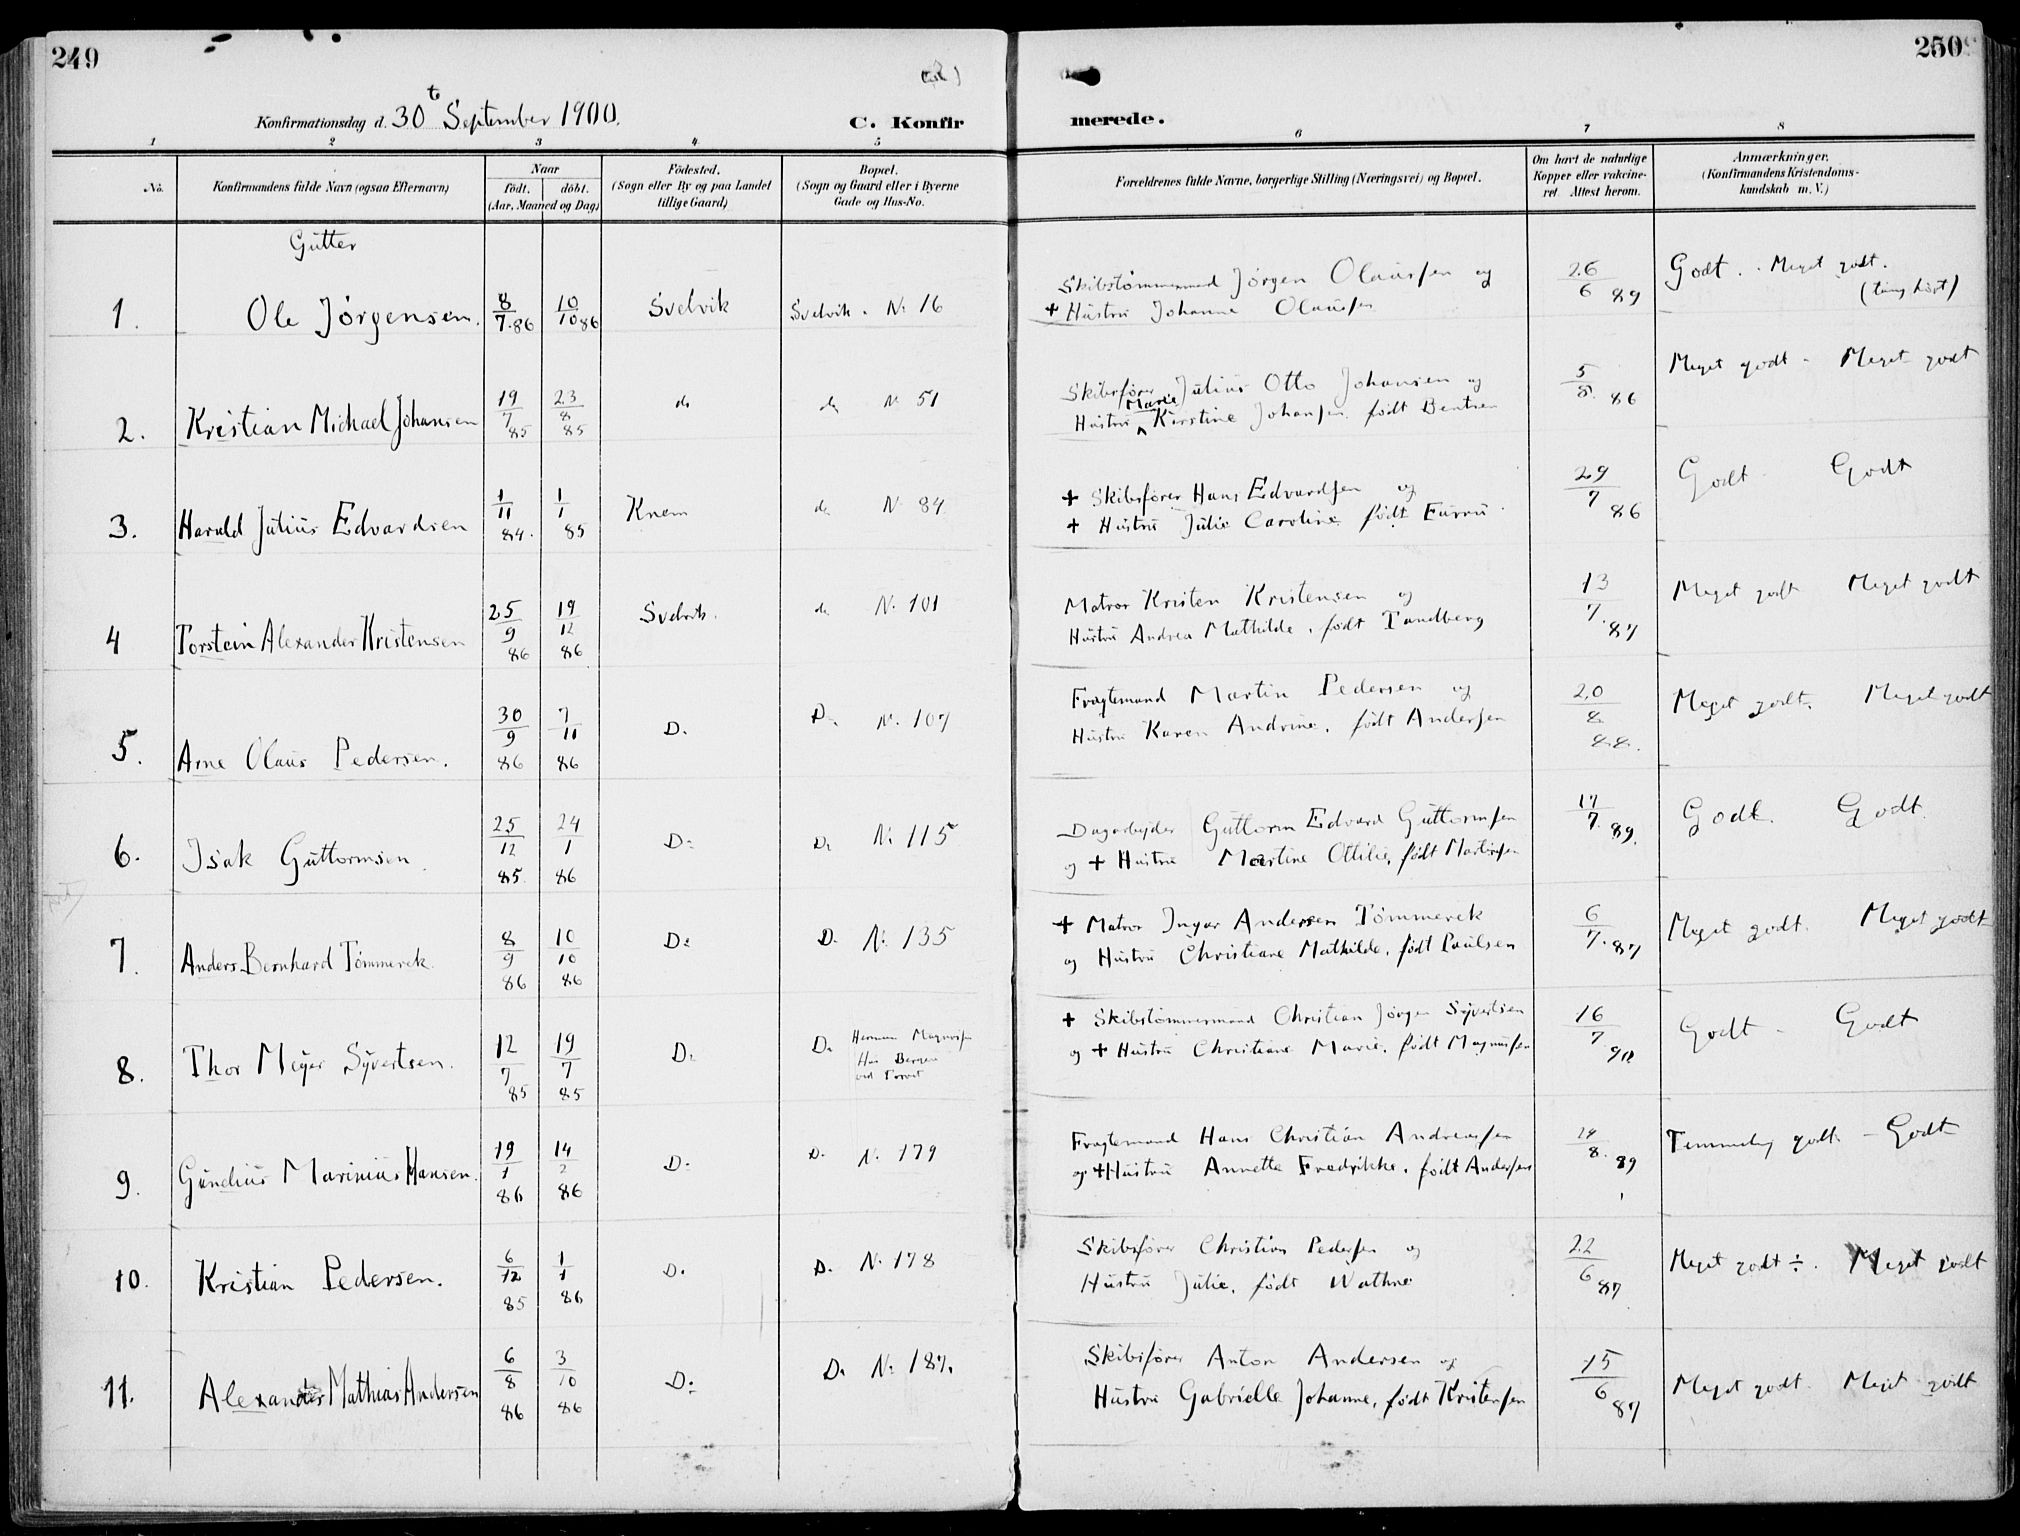 249
250
Konfirmationsdag d. 30t September 1900.
C. Konfirmerede.
1 2 3 4 5 6 7 8
No.
Konfirmandens fulde Navn (ogsaa Efternavn)
Naar
födt. döbt.
(Aar, Maaned og Dag)
Födested.
(Sogn eller By og paa Landet
tillige Gaard)
Bopæl.
(Sogn og Gaard eller i Byerne
Gade og Hus-No.
Forældrenes fulde Navne, borgerlige Stilling (Næringsvei) og Bopæl.
Om havt de naturlige
Kopper eller vakcine-
ret. Attest herom.
Anmærkninger.
(Konfirmandens Kristendoms-
kundskab m. V.)
Gutter
1. Ole Jörgensen. 8/7.86 10/10 86 Svelvik Svelvik. N. 16
Skibstömmermand Jörgen Olaussen og
+ Hustru Johanne Olaussen
26/6 89 Godt. - Meget godt.
2. Kristian Michael Johansen 19/7 85 23/8 85 do do N. 51
Skibsförer Julius Otto Johansen og
Hustru Marie Kirstine Johansen. födt Bentsen
5/8. 86 Meget godt - Meget godt
3. Harald Julius Edvardsen 1/11 84. 1/1 85 Knem do N. 84
+ Skibsförer Hans Edvardsen og
+ Hustru Julie Caroline födt
29/7 86 Godt Godt
4 Torstein Alexander Kristensen 25/9 86 19/12 86 Svelvik. do N. 101
Matros Kristen Kristensen og
Hustru Andrea Mathilde, födt Tandberg
13/7. 87 Meget godt Meget godt
5. Arne Olaus Pedersen. 30/9 86 7/11 86 D. D. N. 107
Fragtemand Martin Pedersen og
Hustru Karen Andrine, födt Andersen
20/8 88. Meget godt. Meget godt
6. Isak Guttormsen. 25/12 85 24/1 86 D. D. N. 115
Dagarbejder Guttorm Edvard Guttormsen
og + Hustru Martine Ottilie, födt Martinsen
17/7. 89. Godt. Godt.
7. Anders Bernhard Tömmerek. 8/9 86 10/10 86 D. D. N. 135
+ Matros Ingvar Andersen Tömmerek
og Hustru Christiane Mathilde, födt Paulsen
6/7. 87 Meget godt. Meget godt
8. Thor Meyer Syvertsen. 12/7 85 19/7 85 D. D. Herman Magnussen
Hus Bergen
ved Torvet
+ Skibstömmermand Christian Jörgen Syvertsen
og + Hustru Christiane Marie, födt Magnussen
16/7 90 Godt - Godt
9. Gundius Marinius Hansen. 19/1 86 14/2 86 D. D. N. 179
Fragtemand Hans Christian Andreassen
og + Hustru Annette Fredrikke, födt Andersen
24/8. 89 Temmelig godt. - Godt
10. Kristian Pedersen. 6/12 85 1/1 86 D. D. N. 178
Skibsförer Christian Pedersen og
Hustru Julie, födt Wathne
22/6 87 Meget godt ÷. Meget godt
11. Alexander Mathias Andersen 6/8 86 3/10 86 D. D. N. 187.
Skibsförer Anton Andersen og
Hustru Gabrielle Johanne, födt Kristensen
15/6 87 Meget godt. Meget godt